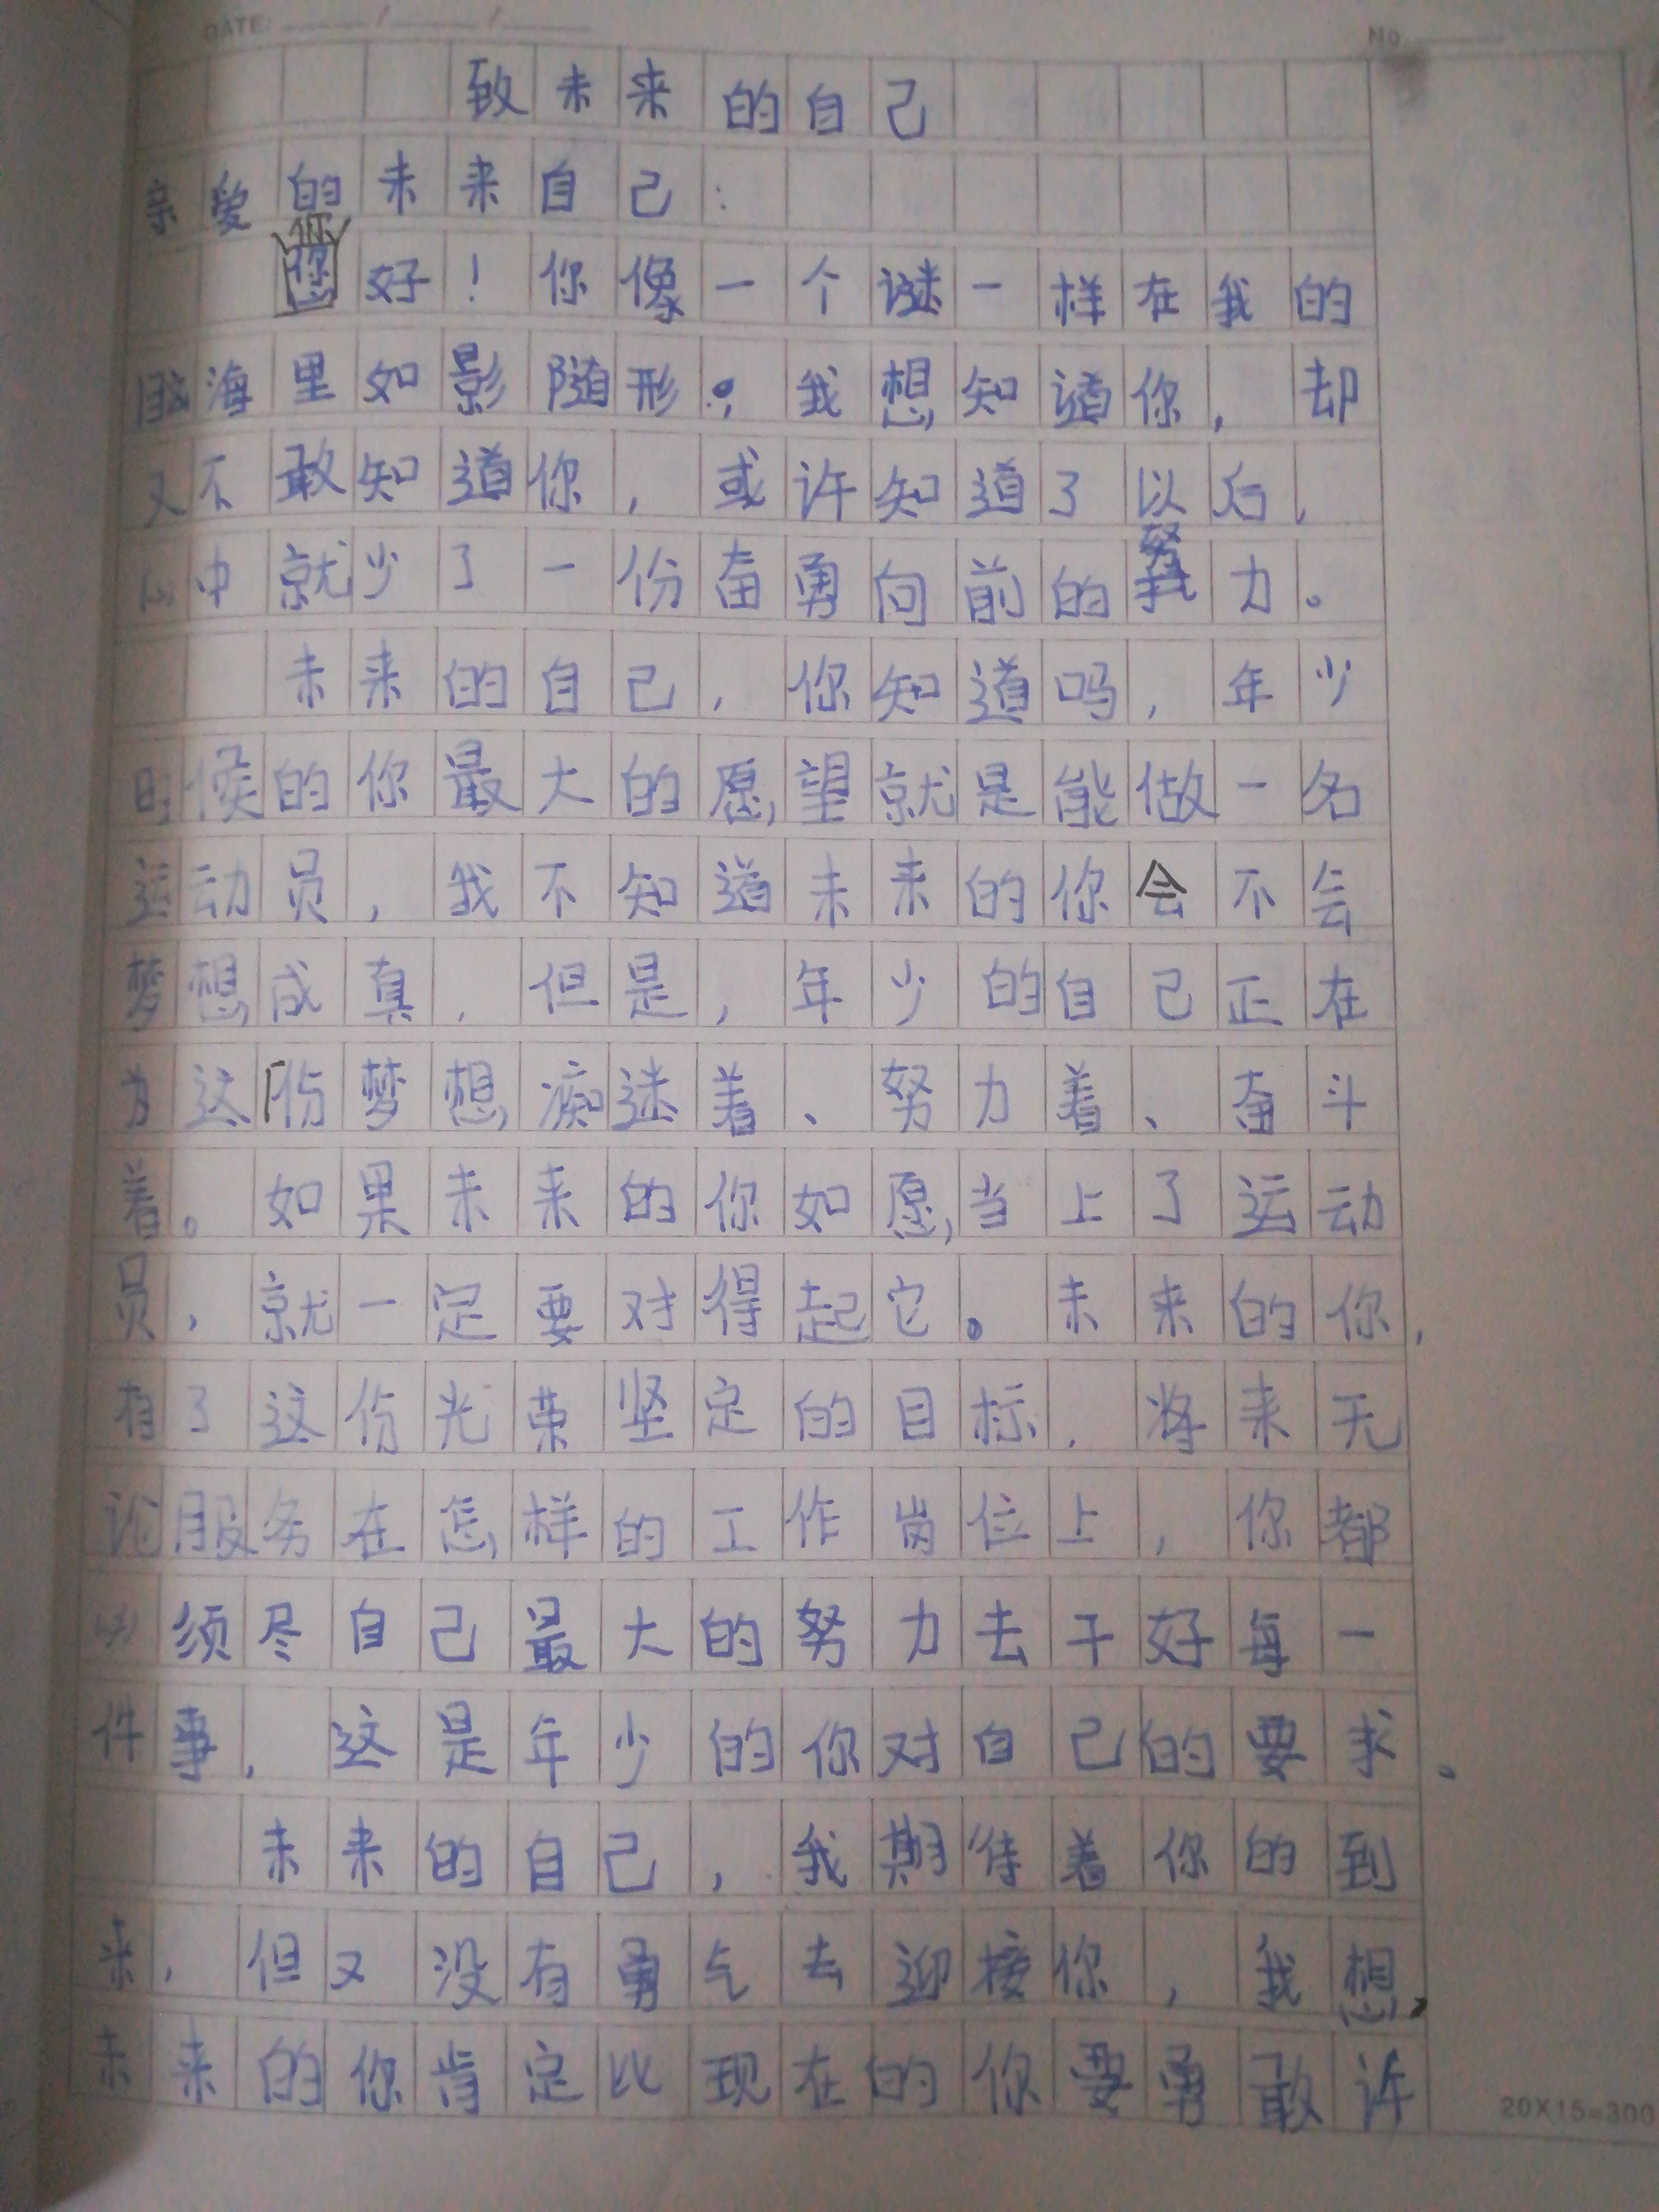 DATE: / /
No.
致未来的自己
亲爱的未来自己:
你好!你像一个谜一样在我的
脑海里如影随形。我想知道你,却
又不敢知道你,或许知道了以后,
心中就少了一份奋勇向前的努力。
未来的自己,你知道吗,年少
时候的你最大的愿望就是能做一名
运动员,我不知道未来的你会不会
梦想成真,但是,年少的自己正在
为这份梦想痴迷着、努力着、奋斗
着。如果未来的你如愿当上了运动
员,就一定要对得起它。未来的你,
有了这份光荣坚定的目标,将来无
论服务在怎样的工作岗位上,你都
必须尽自己最大的努力去干好每一
件事,这是年少的你对自己的要求。
未来的自己,我期待着你的到
来,但又没有勇气去迎接你,我想,
未来的你肯定比现在的你要勇敢许
20X15=300